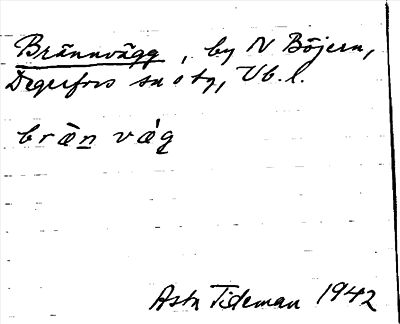 Brännvägg, by N Böjern,
Degerfors sn o tg, Vb. l.
bræ̀n vág
Asta Tideman 1942